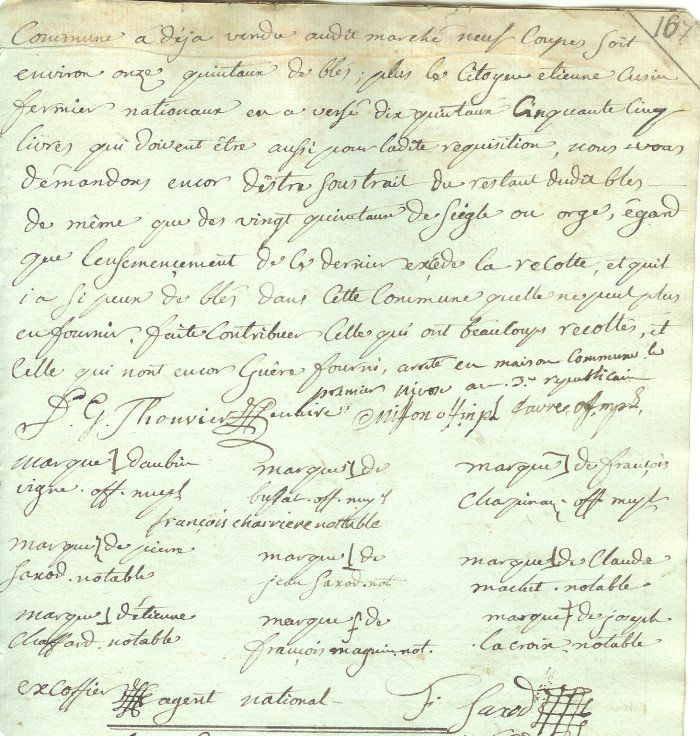 167
Commune a déja vendu audit marché neuf Coupes soit
environ onze quintaux de bles; plus le Citoyen etienne Cusin
fermier nationaux en a versé dix quintaux Cinquante Cinq
livres qui doivent être aussi pour ladite requisition, nous vous
demandons encor dêstre soustrait du restant dudit bles
de même que des vingt quintaux de Siégle ou orge, égard
que lensemencement de Ce dernier exéde la recolte, et quil
i a si peux de blés dans Cette Commune quelle ne peut plus
en fournir. faite Contribuer Celle qui ont beaucoups recoltés, et
Celle qui nont encor Guère fourni, arreté en maison Commune le
premier nivose an 3e. republicain
G. Thouvier
marque de aubin
vigne. off. mupl
marque de
off. mupl
marque de françois
Chapinaz off mupl
françois charriere notable
marque de pierre
Saxod. notable
marque de
jean Saxod. not
marque de Claude
machet. notable
marque détienne
Chaffard. notable
marque de
françois magnin. not.
marque de joseph
la croix. notable
excoffier agent national
F. Saxod